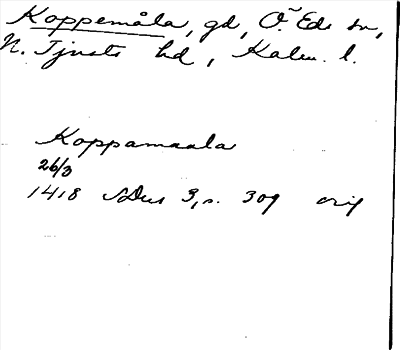 Koppemåla, gd, Ö. Eds sn,
N. Tjusts hd, Kalm. l.
Koppamaala
26/3
1418 SDns 3, s. 309 orig